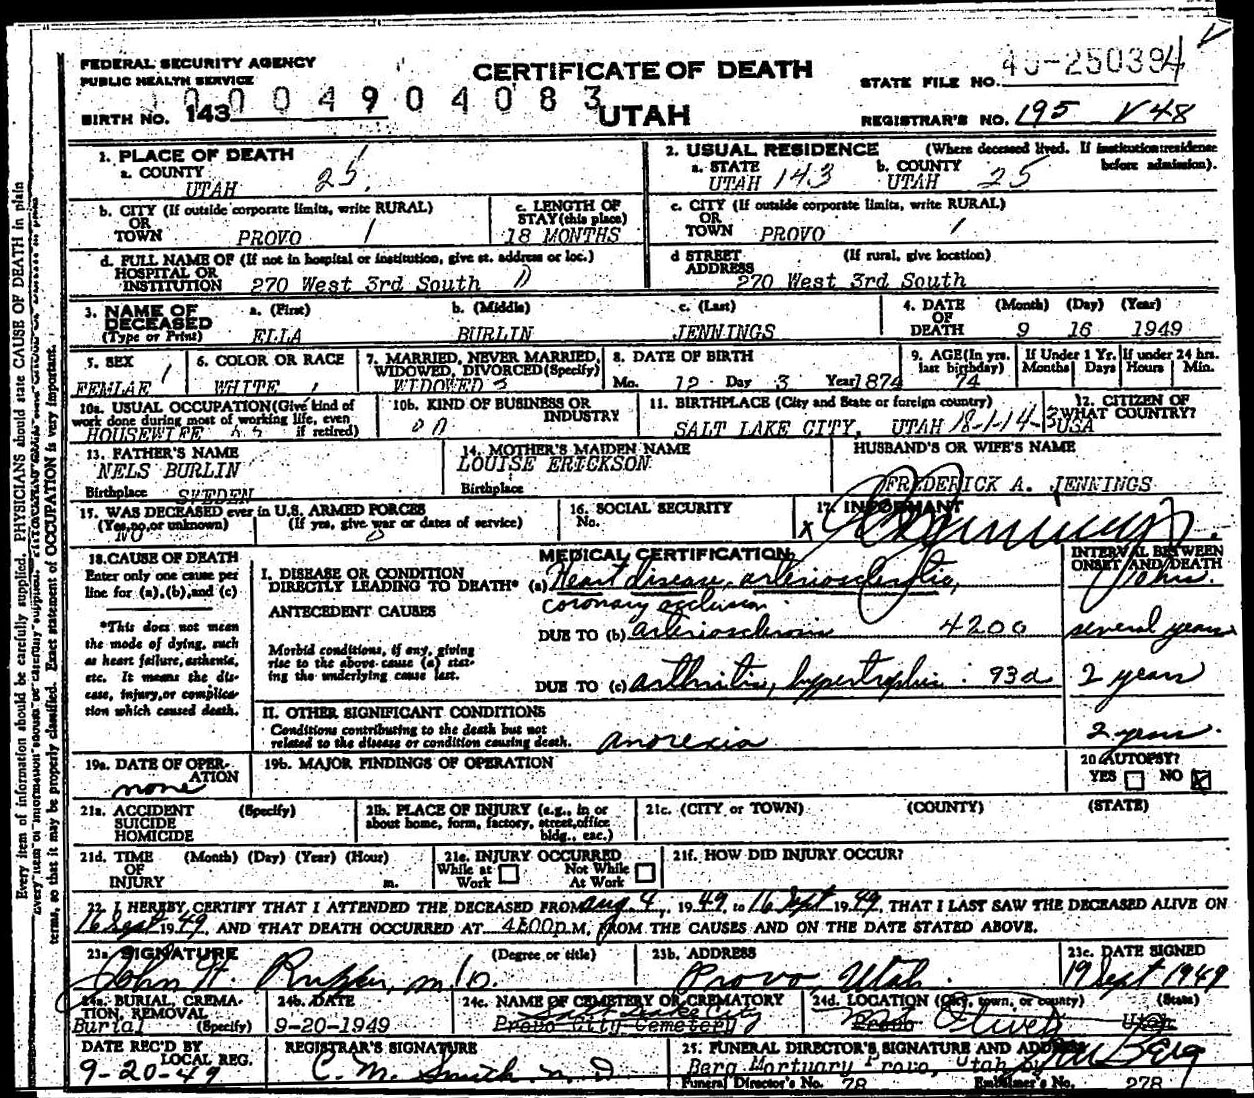 FEDERAL SECURITY AGENCY
PUBLIC HEALTH SERVICE
CERTIFICATE OF DEATH
UTAH
STATE FILE NO. 49-250394
BIRTH NO. 143
0004904083
REGISTRAR'S NO. 195 V 48
Every item of information should be carefully supplied. PHYSICIANS should state CAUSE OF DEATH in plain
terms, so that it may be properly classified. Exact statement of OCCUPATION is very important.
1. PLACE OF DEATH
a. COUNTY
UTAH 25
2. USUAL RESIDENCE (Where deceased lived. If institution: residence before admission).
a. STATE b. COUNTY
UTAH 143 UTAH 25
b. CITY (If outside corporate limits, write RURAL)
OR
TOWN PROVO 1
c. LENGTH OF
STAY (this place)
18 MONTHS
c. CITY (If outside corporate limits, write RURAL)
OR
TOWN PROVO 1
d. FULL NAME OF (If not in hospital or institution, give st. address or loc.)
HOSPITAL OR
INSTITUTION 270 West 3rd South 0
d STREET (If rural, give location)
ADDRESS 270 West 3rd South
3. NAME OF DECEASED (Type or Print)
a. (First) b. (Middle) c. (Last)
ELLA BURLIN JENNINGS
4. DATE OF DEATH (Month) (Day) (Year)
9 16 1949
5. SEX
FEMLAE 1
6. COLOR OR RACE
WHITE 1
7. MARRIED, NEVER MARRIED,
WIDOWED, DIVORCED (Specify)
WIDOWED 3
8. DATE OF BIRTH
Mo. 12 Day 3 Year 1874
9. AGE (In yrs. last birthday)
74
If Under 1 Yr.
Months Days
If under 24 hrs.
Hours Min.
10a. USUAL OCCUPATION (Give kind of
work done during most of working life, even
if retired)
HOUSEWIFE
10b. KIND OF BUSINESS OR
INDUSTRY
11. BIRTHPLACE (City and State or foreign country)
SALT LAKE CITY, UTAH
12. CITIZEN OF
WHAT COUNTRY?
USA
13. FATHER'S NAME
NELS BURLIN
Birthplace SWEDEN
14. MOTHER'S MAIDEN NAME
LOUISE ERICKSON
Birthplace
HUSBAND'S OR WIFE'S NAME
FREDERICK A. JENNINGS
15. WAS DECEASED ever in U.S. ARMED FORCES
(Yes, no, or unknown) (If yes, give war or dates of service)
NO 0
16. SOCIAL SECURITY
No.
17. INFORMANT
X Jennings
18. CAUSE OF DEATH
Enter only one cause per
line for (a), (b), and (c)
*This does not mean
the mode of dying, such
as heart failure, asthenia,
etc. It means the dis-
ease, injury, or complica-
tion which caused death.
MEDICAL CERTIFICATION
INTERVAL BETWEEN
ONSET AND DEATH
I. DISEASE OR CONDITION
DIRECTLY LEADING TO DEATH* (a) Heart disease, arteriosclerotic,
coronary occlusion.
hrs.
ANTECEDENT CAUSES
DUE TO (b) arteriosclerosis 4200 several years
Morbid conditions, if any, giving
rise to the above cause (a) stat-
ing the underlying cause last.
DUE TO (c) arthritis, hypertrophic. 93d 2 years
II. OTHER SIGNIFICANT CONDITIONS
Conditions contributing to the death but not
related to the disease or condition causing death.
anorexia 2 years.
19a. DATE OF OPER-
ATION
none
19b. MAJOR FINDINGS OF OPERATION
20. AUTOPSY?
YES NO X
21a. ACCIDENT (Specify)
SUICIDE
HOMICIDE
21b. PLACE OF INJURY (e.g., in or
about home, form, factory, street, office
bldg., esc.)
21c. (CITY or TOWN) (COUNTY) (STATE)
21d. TIME (Month) (Day) (Year) (Hour)
OF
INJURY m.
21e. INJURY OCCURRED
While at Work Not While At Work
21f. HOW DID INJURY OCCUR?
22. I HEREBY CERTIFY THAT I ATTENDED THE DECEASED FROM Aug. 4, 1949, to 16 Sept 1949, THAT I LAST SAW THE DECEASED ALIVE ON
16 Sept 1949, AND THAT DEATH OCCURRED AT 4:00p M, FROM THE CAUSES AND ON THE DATE STATED ABOVE.
23a. SIGNATURE (Degree or title)
John H. Rupper, M.D.
23b. ADDRESS
Provo, Utah.
23c. DATE SIGNED
19 Sept 1949
24a. BURIAL, CREMA-
TION, REMOVAL
Burial (Specify)
24b. DATE
9-20-1949
24c. NAME OF CEMETERY OR CREMATORY
Salt Lake City
Provo City Cemetery
24d. LOCATION (City, town, or county) (State)
Mt Olivet
Provo Utah
DATE REC'D BY
LOCAL REG.
9-20-49
REGISTRAR'S SIGNATURE
C. M. Smith M D
25. FUNERAL DIRECTOR'S SIGNATURE AND ADDRESS
Berg Mortuary Provo, Utah by Berg
Funeral Director's No. 78 Embalmer's No. 278